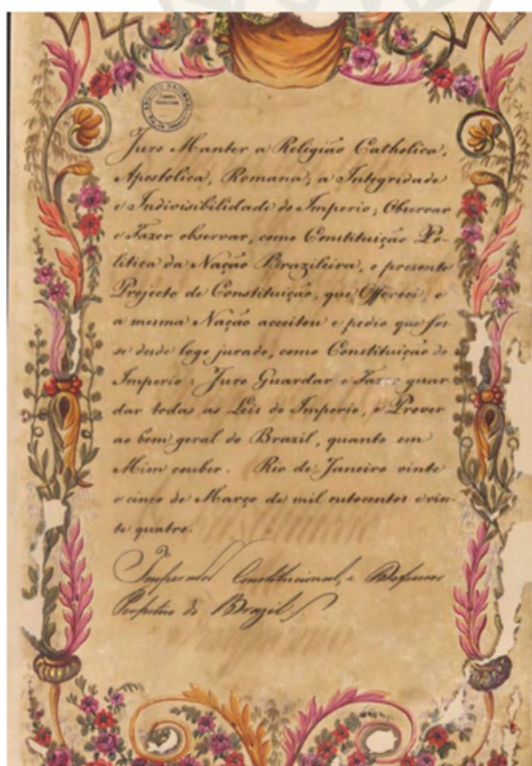 Juro Manter a Religião Catholica,
Apostolica, Romana; a Integridade
e Indivisibilidade do Imperio; Observar
e Fazer observar, como Constituição Po-
litica da Nação Brazileira, o presente
Projecto de Constituição, que Offereci, e
a mesma Nação acceitou e pedio que fos-
se desde logo jurado, como Constituição do
Imperio: Juro Guardar e Fazer guar
dar todas as Leis do Imperio, e Prover
ao bem geral do Brazil, quanto em
Mim couber. Rio de Janeiro vinte
e cinco de Março de mil oitocentos e vin-
te quatro.
Imperador Constitucional, e Defensor
Perpetuo do Brazil